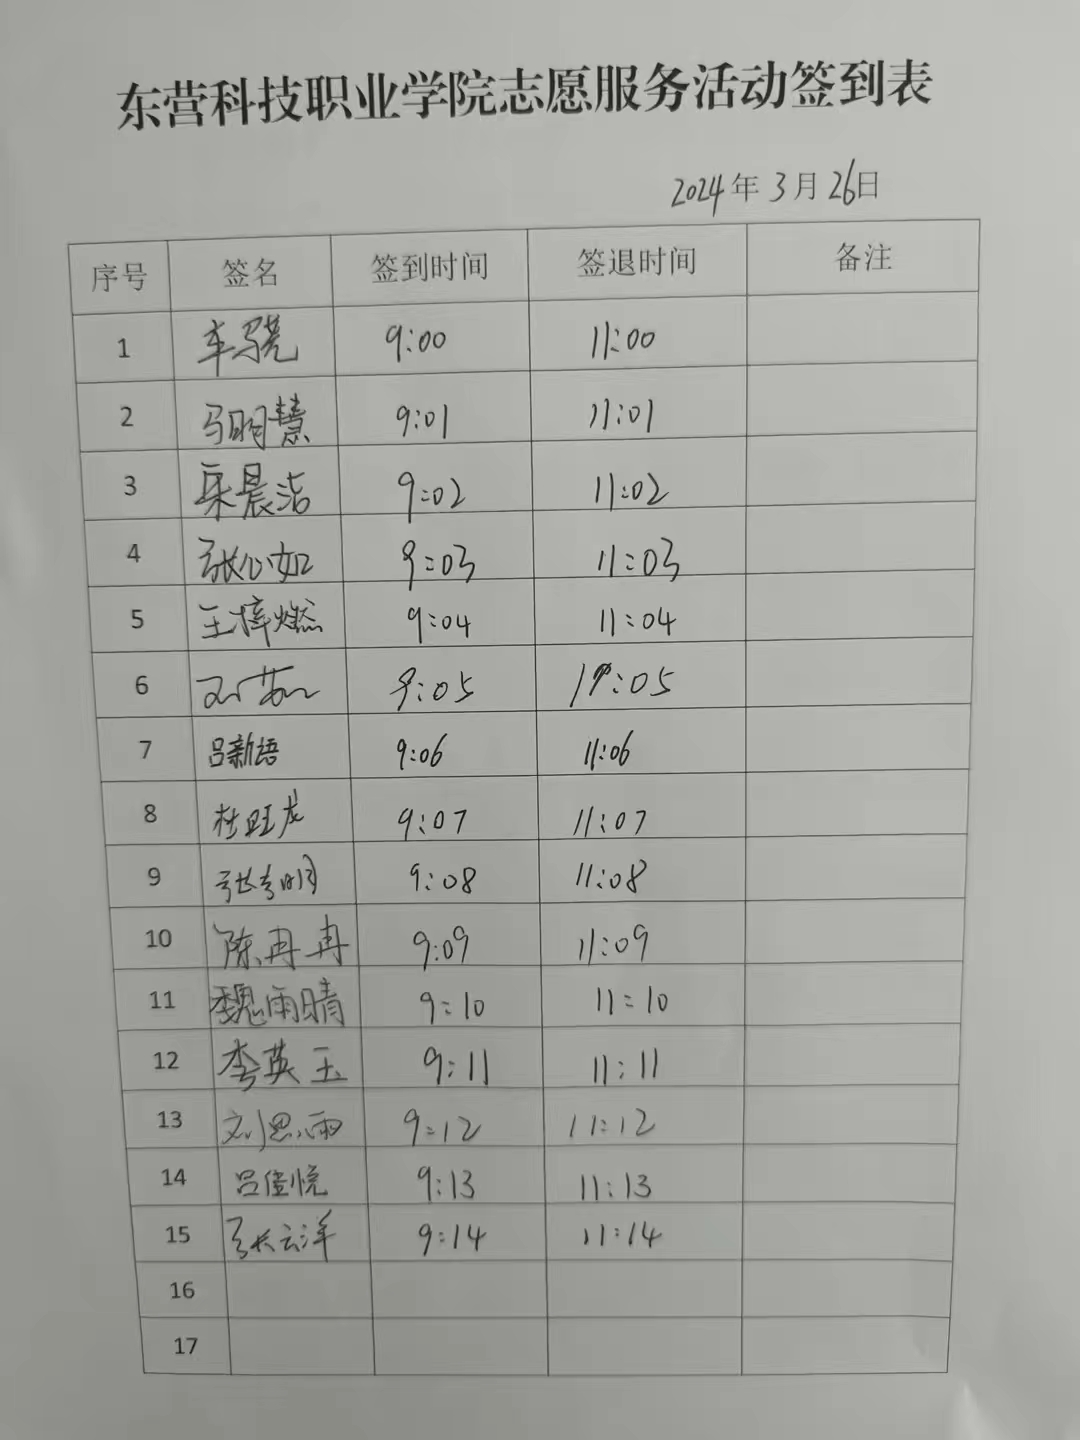 东营科技职业学院志愿服务活动签到表
2024年3月26日
序号 签名 签到时间 签退时间 备注
1 车骁 9:00 11:00
2 马明慧 9:01 11:01
3 晨洁 9:02 11:02
4 张心如 9:03 11:03
5 王梓燃 9:04 11:04
6 9:05 11:05
7 吕新语 9:06 11:06
8 杜旺龙 9:07 11:07
9 张 明 9:08 11:08
10 陈冉冉 9:09 11:09
11 魏雨晴 9:10 11:10
12 李英玉 9:11 11:11
13 刘思雨 9:12 11:12
14 吕佳悦 9:13 11:13
15 张云洋 9:14 11:14
16
17